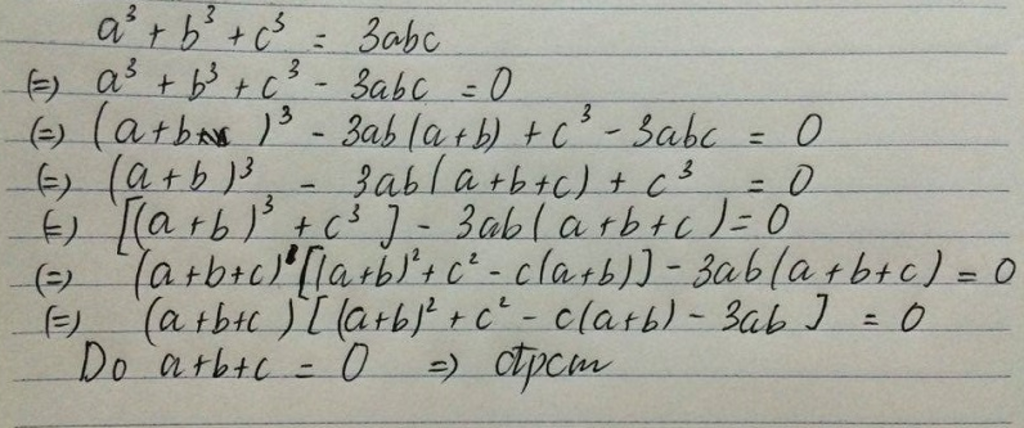 a³ + b³ + c³ = 3abc
(=) a³ + b³ + c³ - 3abc = 0
(=) (a+b )³ - 3ab(a+b) + c³ - 3abc = 0
(=) (a+b)³ - 3ab(a+b+c) + c³ = 0
(=) [(a+b)³ + c³] - 3ab(a+b+c) = 0
(=) (a+b+c)[(a+b)² + c² - c(a+b)] - 3ab(a+b+c) = 0
(=) (a+b+c)[(a+b)² + c² - c(a+b) - 3ab] = 0
Do a+b+c = 0 => đpcm